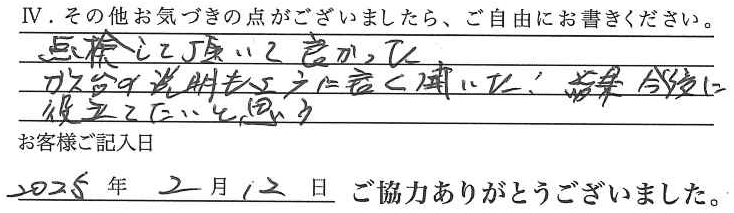 Ⅳ．その他お気づきの点がございましたら、ご自由にお書きください。
点検して頂いて良かった
ガス台の説明も に良く聞いた! 結果 今後に
役立てたいと思う
お客様ご記入日
2025 年 2 月 12 日 ご協力ありがとうございました。